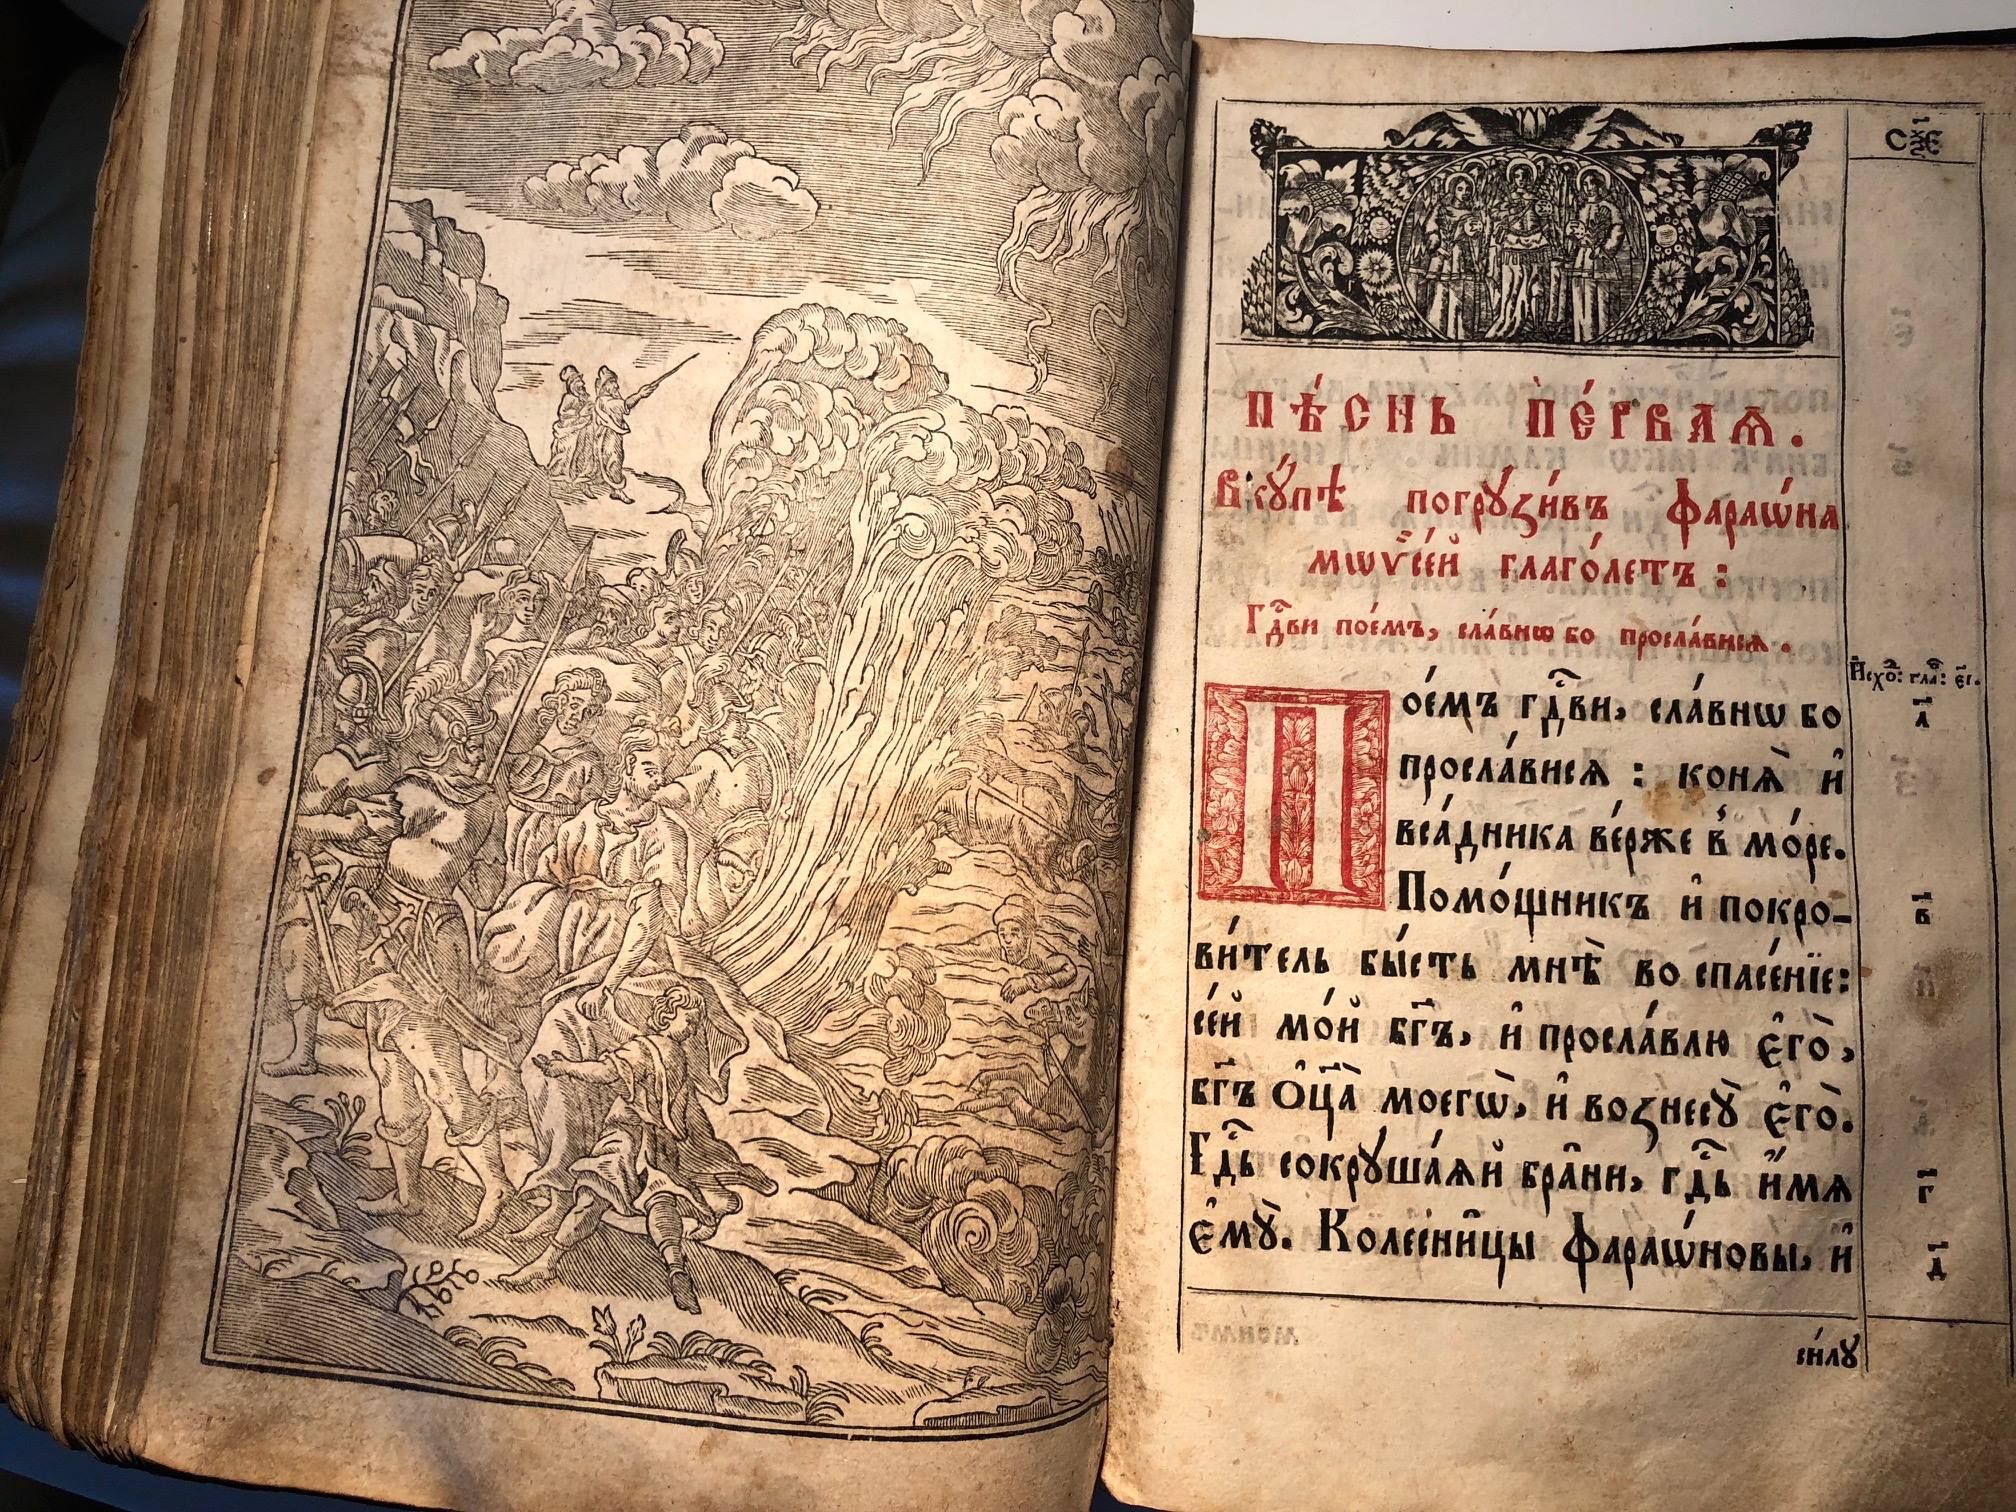 СѮЕ
ПѢ́СНЬ ПЕ́РВАѦ.
Вкꙋ́пѣ погрꙋзи́въ фараѡ́на
мѡѷсе́й глаго́летъ:
Гдⷭ҇ви пое́мъ, сла́внѡ бо просла́висѧ.
Исхо́ⷣ: гла̑: е҃і.
Пое́мъ гдⷭ҇ви, сла́внѡ бо а҃
просла́висѧ: конѧ̀ и҆
вса́дника ве́рже в̾ мо́ре.
Помо́щникъ и҆ покро- в҃
ви́тель бы́сть мнѣ̀ во спасе́нїе:
се́й мо́й бг҃ъ, и҆ просла́влю є҆го̀,
бг҃ъ ѻ҆ц҃а̀ моегѡ̀, и҆ вознесꙋ̀ є҆го̀.
Гдⷭ҇ь сокрꙋша́ѧй бра̑ни, гдⷭ҇ь и҆́мѧ г҃
є҆мꙋ̀. Колесни̑цы фараѡ́новы, и҆ д҃
си́лꙋ